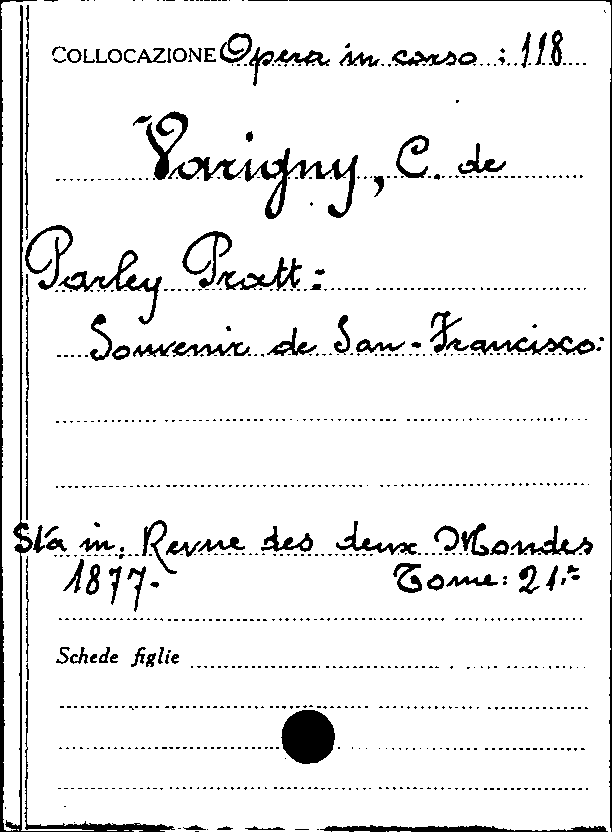 COLLOCAZIONE Opera in corso : 118
Varigny, C. de
Parley Pratt :
Souvenir de San - Francisco :
Sta in : Revue des deux Mondes
1877 - Tome : 21.°
Schede figlie